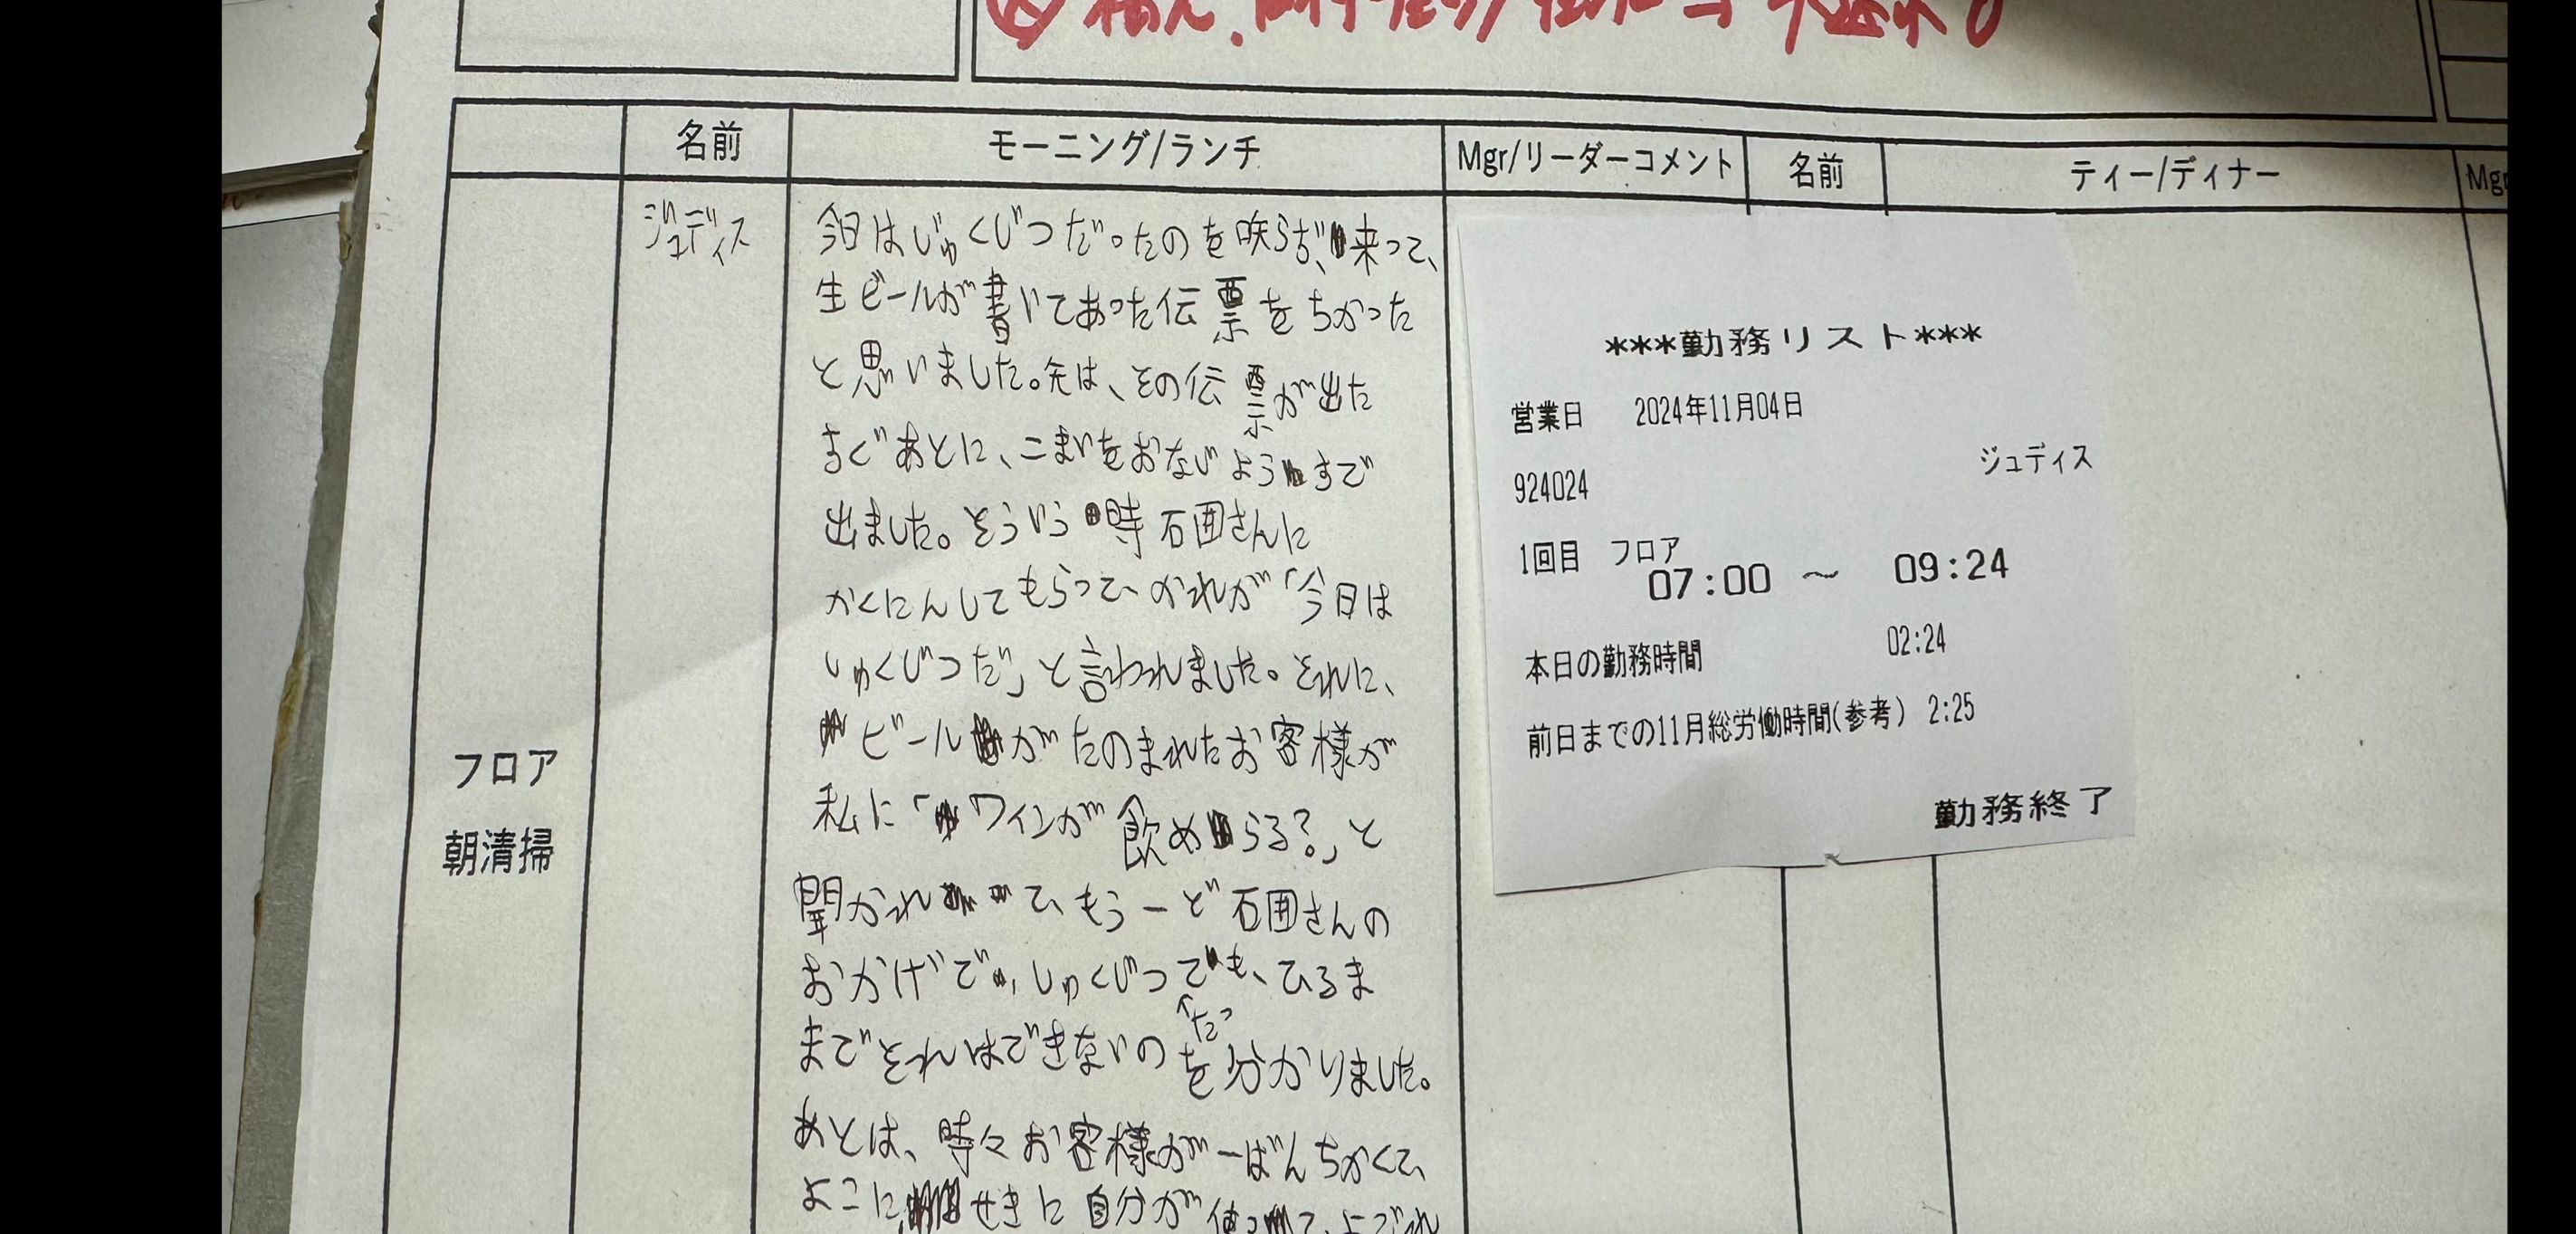 名前
モーニング/ランチ
Mgr/リーダーコメント
名前
ティー/ディナー
Mgr
フロア
朝清掃
ジュディス
今日はじゅくじつだったのを 来って、
生ビールが書いてあった伝票をちがった
と思いました。先は、その伝票が出た
すぐあとに、こまいをおなじよう すで
出ました。そういう時石囲さんに
かくにんしてもらって、かれが「今日は
しゅくじつだ」と言われました。それに、
ビールがたのまれたお客様が
私に「ワインが飲めらる?」と
聞かれて、もう一ど石囲さんの
おかげで、しゅくじつでも、ひるま
までそれはできないのを分かりました。
だっ
あとは、時々お客様が一ばんちかくて、
よこにせきに自分が
***勤務リスト***
営業日 2024年11月04日
ジュディス
924024
1回目 フロア
07:00 ~ 09:24
本日の勤務時間 02:24
前日までの11月総労働時間(参考) 2:25
勤務終了